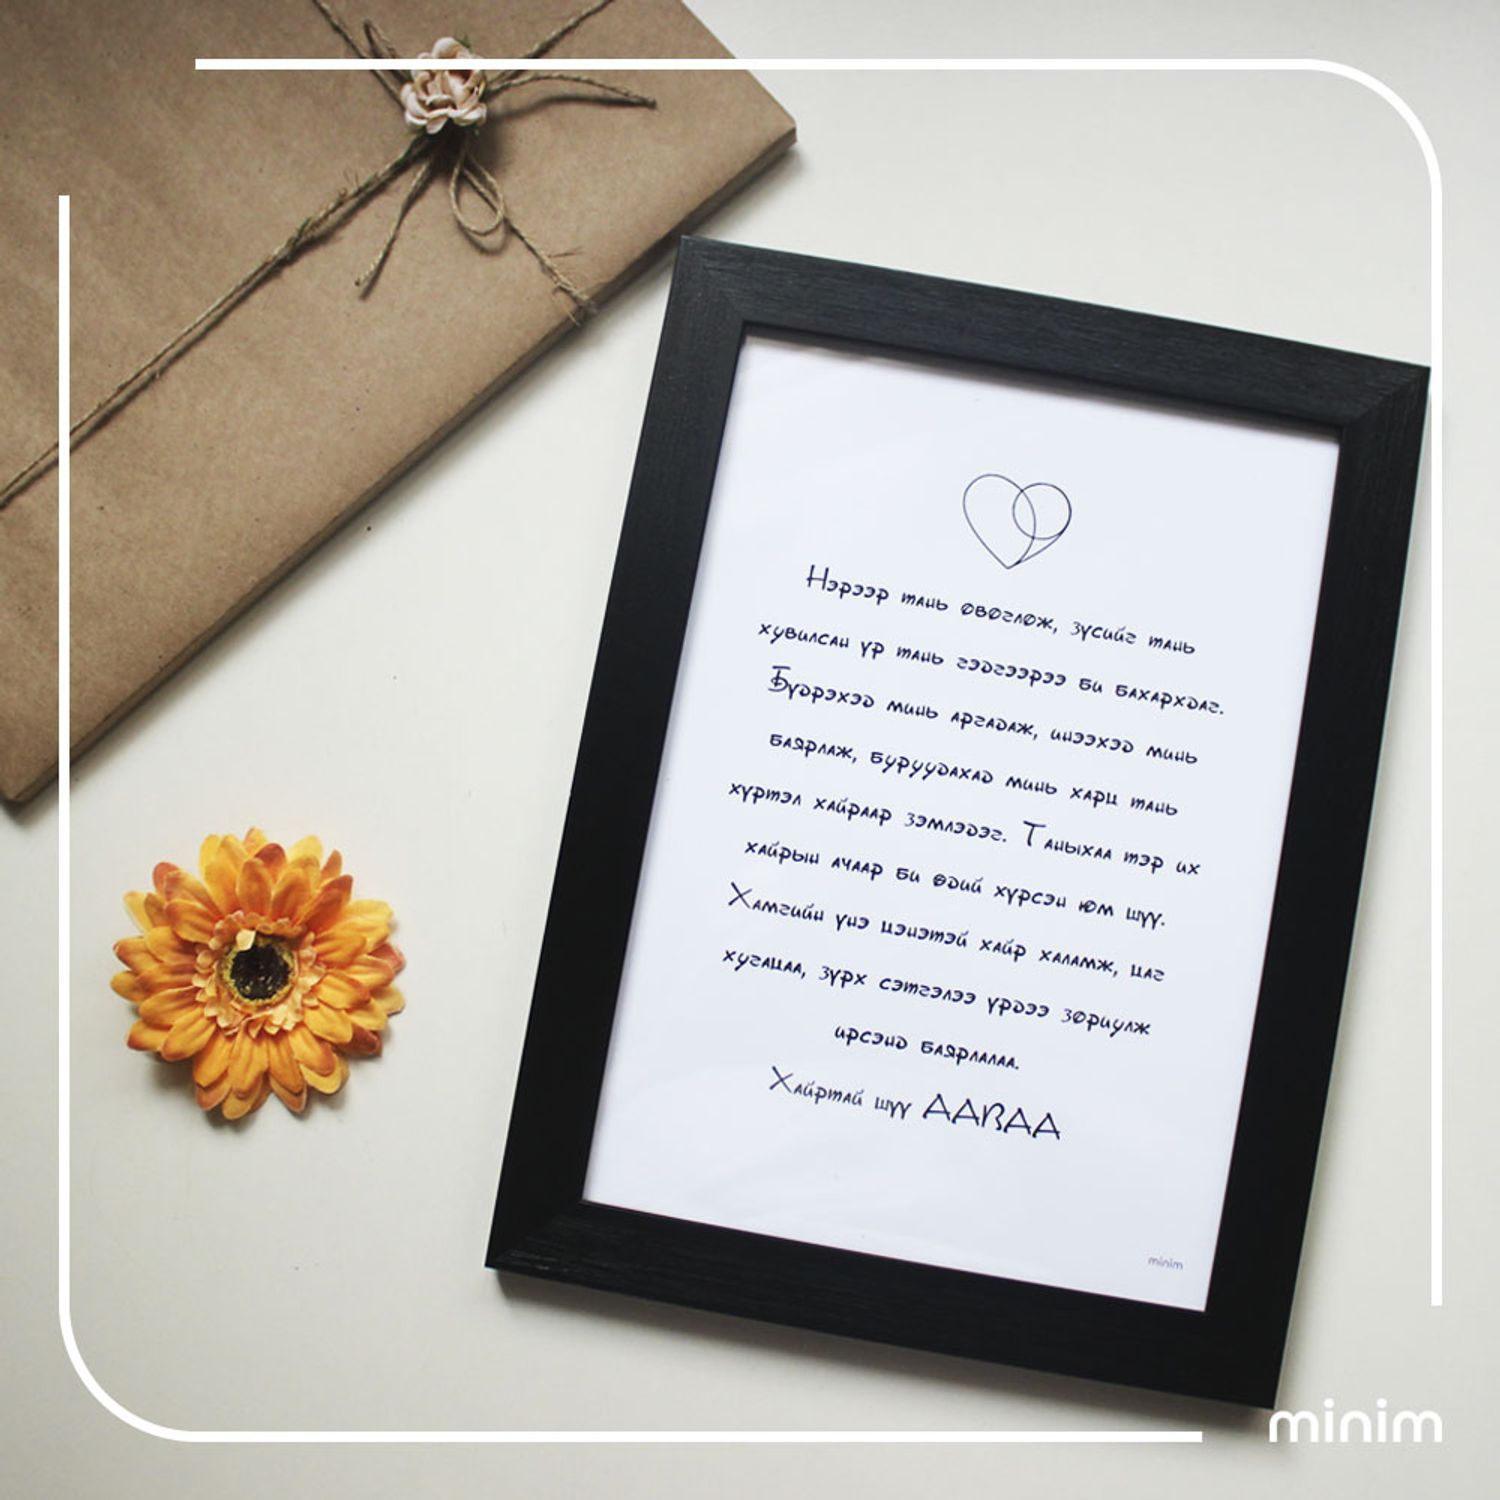 Нэрээр тань овоглож, зүсийг тань
хувилсан үр тань гэдгээрээ би бахархдаг.
Бүдрэхэд минь аргадаж, инээхэд минь
баярлаж, буруудахад минь харц тань
хүртэл хайраар зэмлэдэг. Таныхаа тэр их
хайрын ачаар би өдий хүрсэн юм шүү.
Хамгийн үнэ цэнэтэй хайр халамж, цаг
хугацаа, зүрх сэтгэлээ үрдээ зориулж
ирсэнд баярлалаа.
Хайртай шүү ААВАА
minim
minim